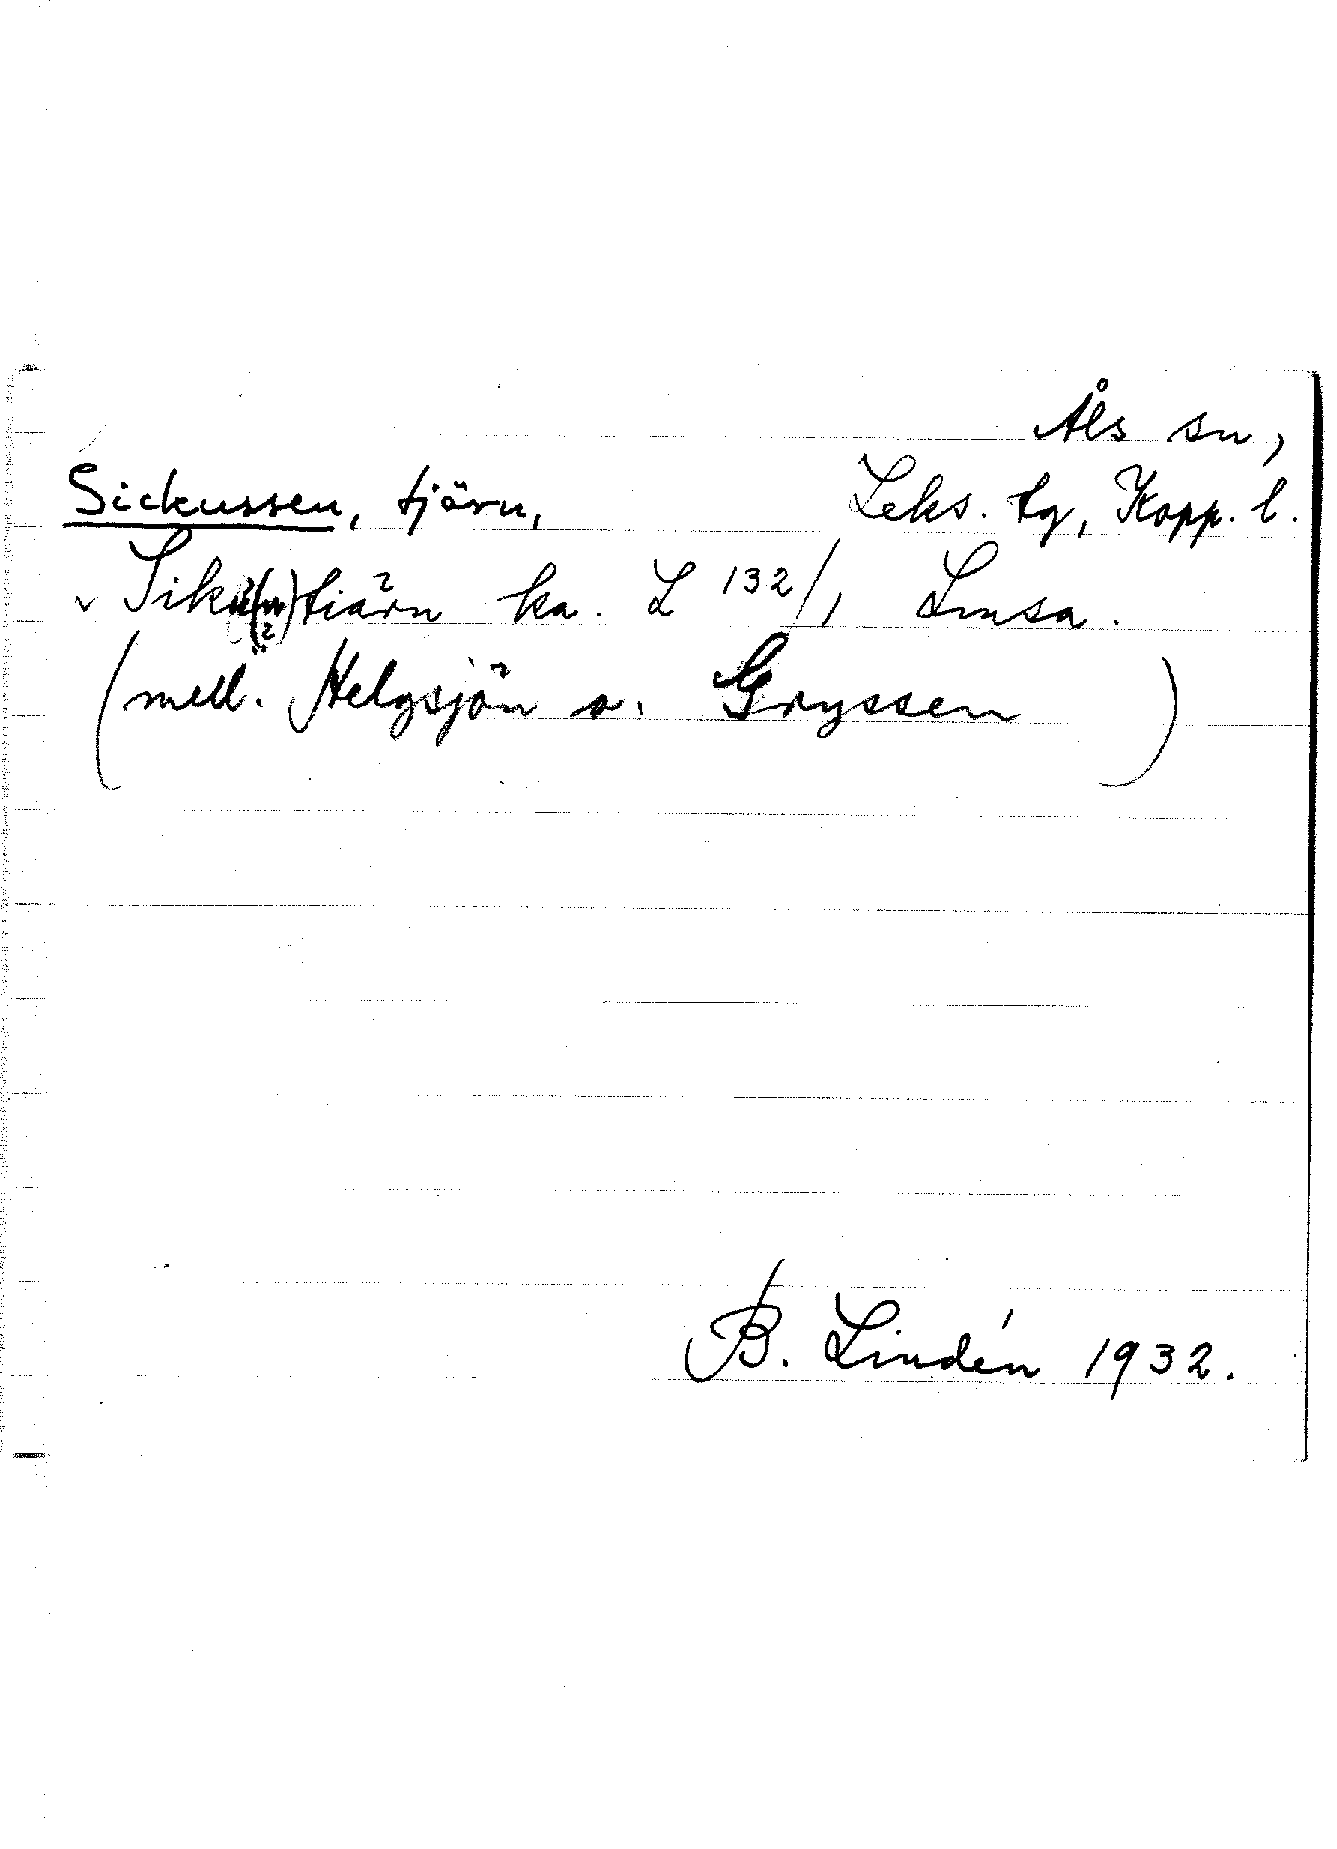 Åls sn,
Sickussen, tjärn, Leks. tg, Kopp. l.
tiärn ka. L 132/1, Lmsa.
(mell. Helgsjön o. Gryssen)
B. Lindén 1932.